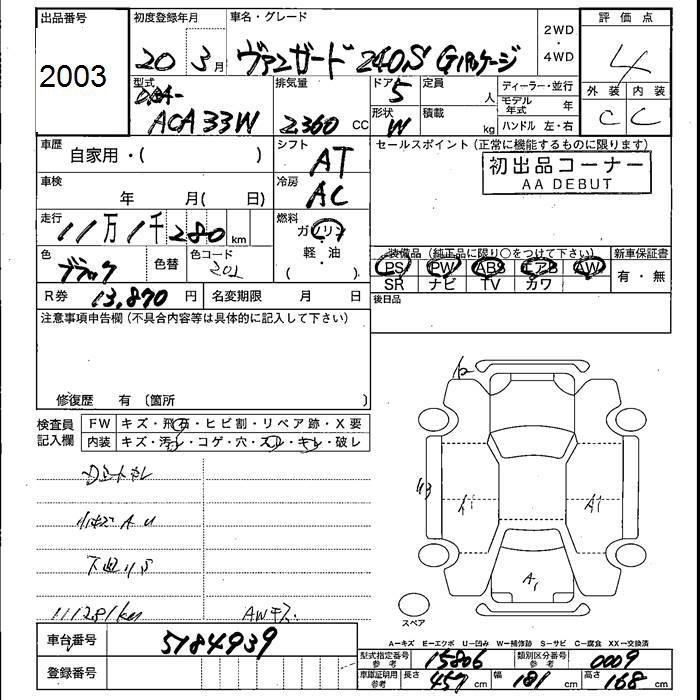 出品番号
2003
初度登録年月
20 3月
車名・グレード
ヴァンガード 240S Gパッケージ
2WD
・
4WD
評価点
4
外装 内装
C C
型式
DBA-
ACA33W
排気量
2360 CC
ドア 5
形状 W
定員 人
積載 kg
ディーラー・並行
モデル年式 年
ハンドル 左・右
車歴
自家用・( )
シフト
AT
セールスポイント(正常に機能するものに限ります)
初出品コーナー
AA DEBUT
車検
年 月( 日)
冷房
AC
走行
11万1千280km
燃料
ガソリン
軽油
( )
色
ブラック
色替
色コード
202
装備品(純正品に限り○をつけて下さい)
PS PW ABS エアB AW
SR ナビ TV カワ
新車保証書
有・無
R券 13,870円
名変期限 月 日
後日品
注意事項申告欄(不具合内容等は具体的に記入して下さい)
修復歴 有〔箇所 〕
検査員記入欄
FW キズ・飛石・ヒビ割・リペア跡・X要
内装 キズ・汚れ・コゲ・穴・スレ・キレ・破レ
小キズ A U
下廻りS
111281km
AWキズ
A1
A1
A1
スペア
A−キズ E−エクボ U−凹み W−補修跡 S−サビ C−腐食 XX−交換済
車台番号
5184939
登録番号
型式指定番号 参考 15806
類別区分番号 参考 0009
車庫証明用 参考 長さ 457cm 幅 181cm 高さ 168cm